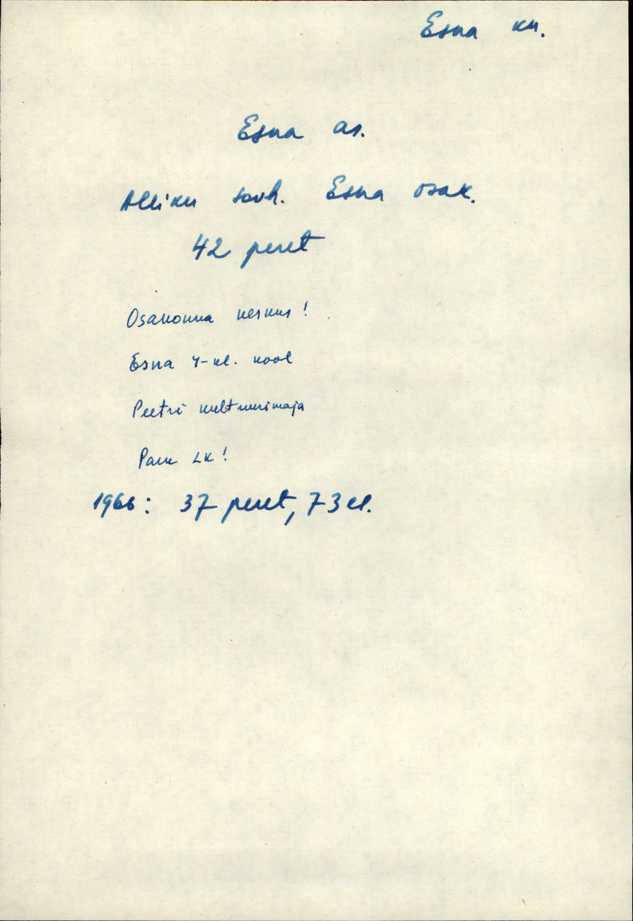 Esna kn.
Esna as.
Alliku sovh. Esna osak.
42 peret
Osakonna keskus!
Esna 4-kl. kool
Peetri kultuurimaja
Park LK!
1966: 37 peret, 73 el.